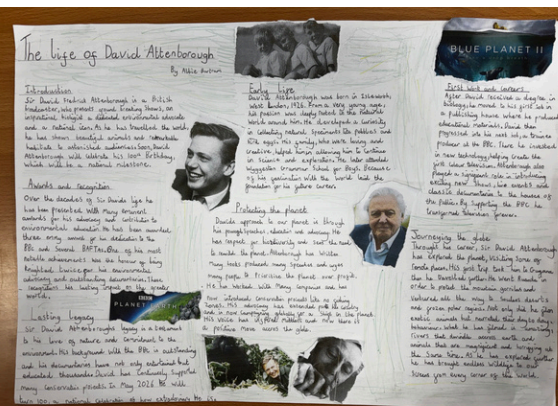 The Life of David Attenborough
By Alfie
Introduction
Sir David Fredrick Attenborough is a British
broadcaster, who presents ground breaking shows, an
inspirational biologist a dedicated environmental advocate
and a national icon. As he has travelled the world,
he has shown beautiful animals and remarkable
habitats to astonished audiences. Soon, David
Attenborough will celebrate his 100th Birthday,
which will be a national milestone.
Awards and recognition
Over the decades of Sir Davids life he
has been presented with Many
awards for his advocacy and contribution to
environmental education. He has been awarded
three emmy awards for his dedication to the
BBC and several BAFTAs. One of his most
notable achievements was the honour of being
knighted twice for his environmental
advocacy and outstanding documentaries. These
recognitions his lasting impact on the
world.
Lasting Legacy
Sir David Attenboroughs legacy is a testament
to his love of nature and commitment to the
environment. His background with the BBC is outstanding
and his documentaries have not only entertained but
educated thousands. David has continuously supported
many conservation projects. In May 2026 He will
turn 100, a national celebration of how extraordinary He is.
Early Life
David Attenborough was born in Isleworth,
West London, 1926. From a very young age,
his passion was deeply rooted in the natural
world around him. He developed a curiosity
in collecting natural specimens like pebbles and
His family, who were loving and
creative, helped him allowing him to continue
in science and exploration. He later attended
Wyggeston Grammar School for Boys. Because
of his fascination with the world laid the
foundation for his future career.
Protecting the planet
Davids approach to our planet is through
his speeches, education and advocacy. He
has respect for biodiversity and the need
to the planet. Attenborough has written
Many books produced many speeches and urges
many people to Prioritise the planet over
He has Worked With Many Companies and has
now introduced conservation projects
This advocacy has extended
and is now campaigning globally for a in the planet.
His voice has and now there is
a positive move across the globe.
BLUE PLANET II
First work and careers
After David received a degree in
biology, he moved to his first job in
a publishing house where he produced
educational materials. David then
progressed into his next job a trainee
producer at the BBC. There he invested
in new technology, helping create the
first Television. Attenborough also
played a significant role in introducing
exciting new shows, live events and
classic documentaries in the houses of
the Public. By supporting the BBC he
transformed television forever.
Journeying the globe
Through his career, Sir David Attenborough
has explored the planet, visiting some of
remote places. His first trip took him to
then he went Rwanda in
order to protect the mountain gorillas and
ventured all the way to
and frozen polar regions. Not only did he film
exotic animals but narrated their day to day
behaviour. What he has filmed is
rivers that meander across earth and
animals that are and intriguing at
the same time. As he has explored
he has brought endless wildlife to our
screens from every corner of the world.
BBC
PLANET EARTH